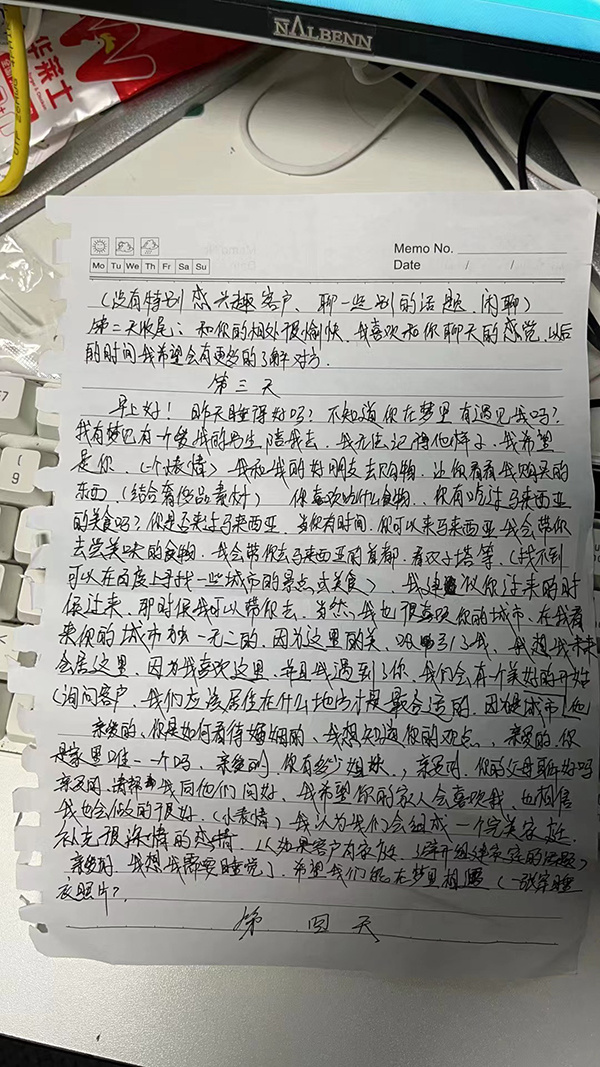 NALBENN
华莱士
Memo No.
Mo Tu We Th Fr Sa Su
Date / /
(没有特别感兴趣客户、聊一些别的话题.闲聊)
第二天收尾:和你的相处很愉快.我喜欢和你聊天的感觉.以后
的时间我希望会有更多的了解对方.
第三天
早上好!昨天睡得好吗?不知道你在梦里有遇见我吗?
我有梦见有一个爱我的男生陪我去.我无法记得他样子.我希望
是你.(一个表情)我和我的好朋友去购物.让你看看我购买的
东西.(结合奢侈品素材)你喜欢吃什么食物..你有吃过马来西亚
的美食吗?你是否来过马来西亚.当你有时间.你可以来马来西亚我会带你
去尝美味的食物.我会带你去马来西亚的首都.看双子塔等.(找不到
可以在百度上寻找一些城市的景点或美食).我建议你过来的时
候过来.那时候我可以带你去.当然.我也很喜欢你的城市.在我看
来你的城市独一无二的.因为这里的美.吸引了我.我想我未来
会居这里.因为我喜欢这里.并且我遇到了你.我们会有一个美好的开始
(询问客户.我们应该居住在什么地方才是最合适的.因为是城市
亲爱的.你是如何看待婚姻的.我想知道你的观点..亲爱的.你
是家里唯一一个吗.亲爱的.你有多少姐妹..亲爱的.你的父母都好吗
亲爱的.请帮我同他们问好.我希望你的家人会喜欢我.也相信
我也会做的很好.(小表情)我认为我们会组成一个完美家庭.
补充很深情的感情.以如果客户有家庭.避开组建家庭的话题)
亲爱的.我想我需要睡觉了.希望我们能在梦里相遇(一张穿睡
衣照片?
第四天